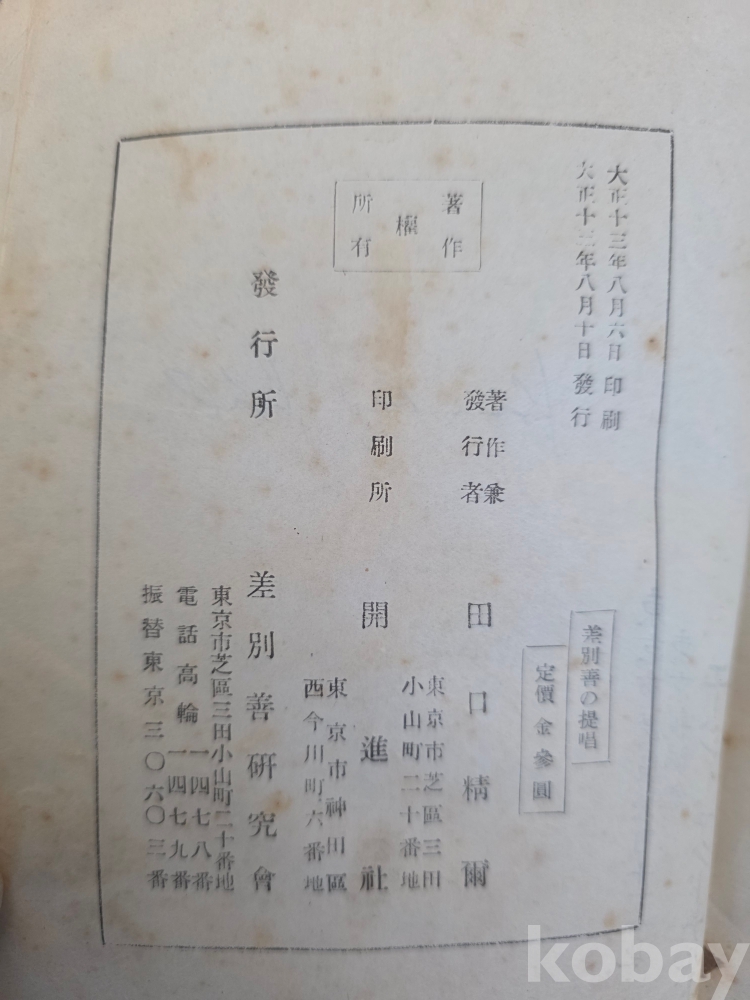 大正十三年八月六日印刷
大正十三年八月十日發行
差別善の提唱
定價金參圓
著作
權
所有
著作兼
發行者
田口精爾
東京市芝區三田
小山町二十番地
印刷所
開進社
東京市神田區
西今川町六番地
發行所
差別善研究會
東京市芝區三田小山町二十番地
電話高輪一四七八番
一四七九番
振替東京三〇六〇三番
kobay